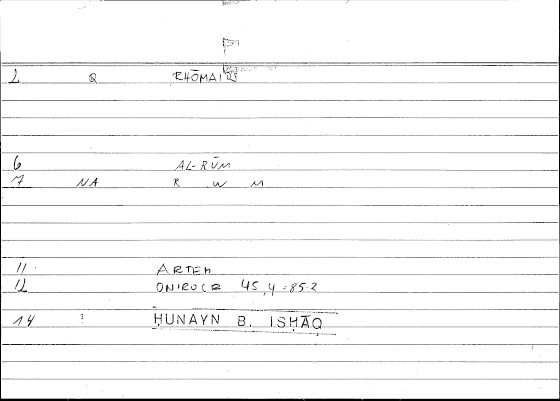 2 Q RHŌMAIOS
6 AL-RŪM
7 NA R W M
11 ARTEM
12 ONIROCR 45,4 = 85.2
14 ? ḤUNAYN B. ISḤĀQ